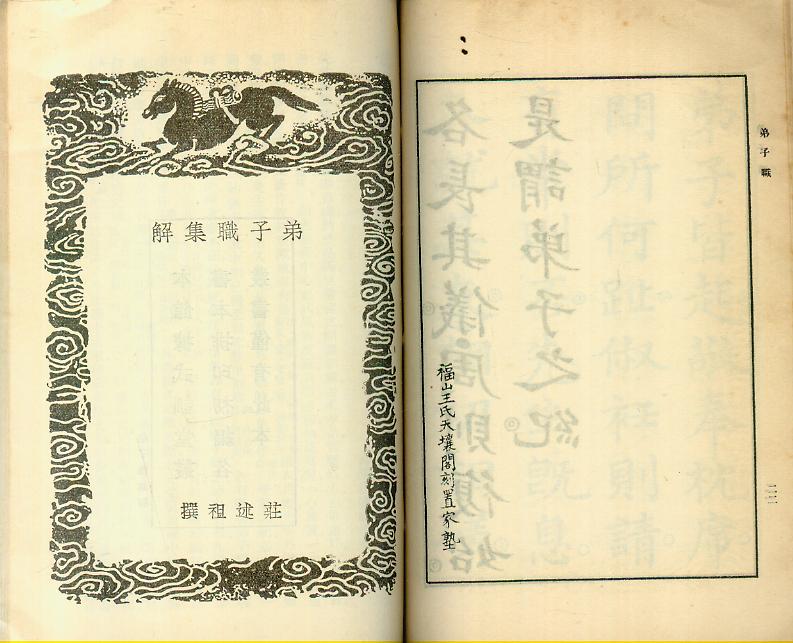 弟子職
是謂弟子之紀
各長其儀周則復始
福山王氏天壤閣刻置家塾
弟子職集解
莊述祖撰